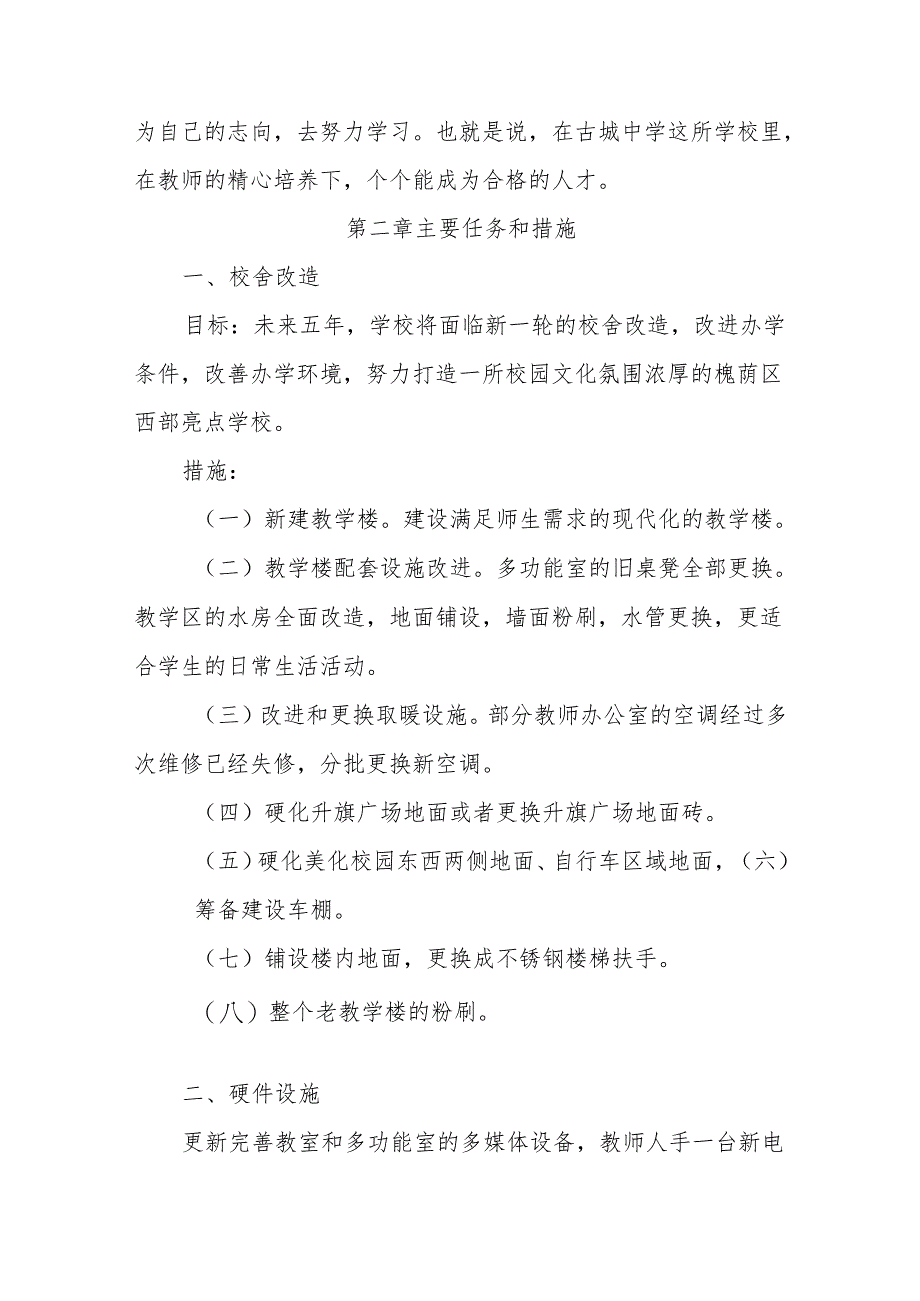 为自己的志向，去努力学习。也就是说，在古城中学这所学校里，
在教师的精心培养下，个个能成为合格的人才。
第二章主要任务和措施
一、校舍改造
目标：未来五年，学校将面临新一轮的校舍改造，改进办学
条件，改善办学环境，努力打造一所校园文化氛围浓厚的槐荫区
西部亮点学校。
措施：
（一）新建教学楼。建设满足师生需求的现代化的教学楼。
（二）教学楼配套设施改进。多功能室的旧桌凳全部更换。
教学区的水房全面改造，地面铺设，墙面粉刷，水管更换，更适
合学生的日常生活活动。
（三）改进和更换取暖设施。部分教师办公室的空调经过多
次维修已经失修，分批更换新空调。
（四）硬化升旗广场地面或者更换升旗广场地面砖。
（五）硬化美化校园东西两侧地面、自行车区域地面，（六）
筹备建设车棚。
（七）铺设楼内地面，更换成不锈钢楼梯扶手。
（八）整个老教学楼的粉刷。
二、硬件设施
更新完善教室和多功能室的多媒体设备，教师人手一台新电